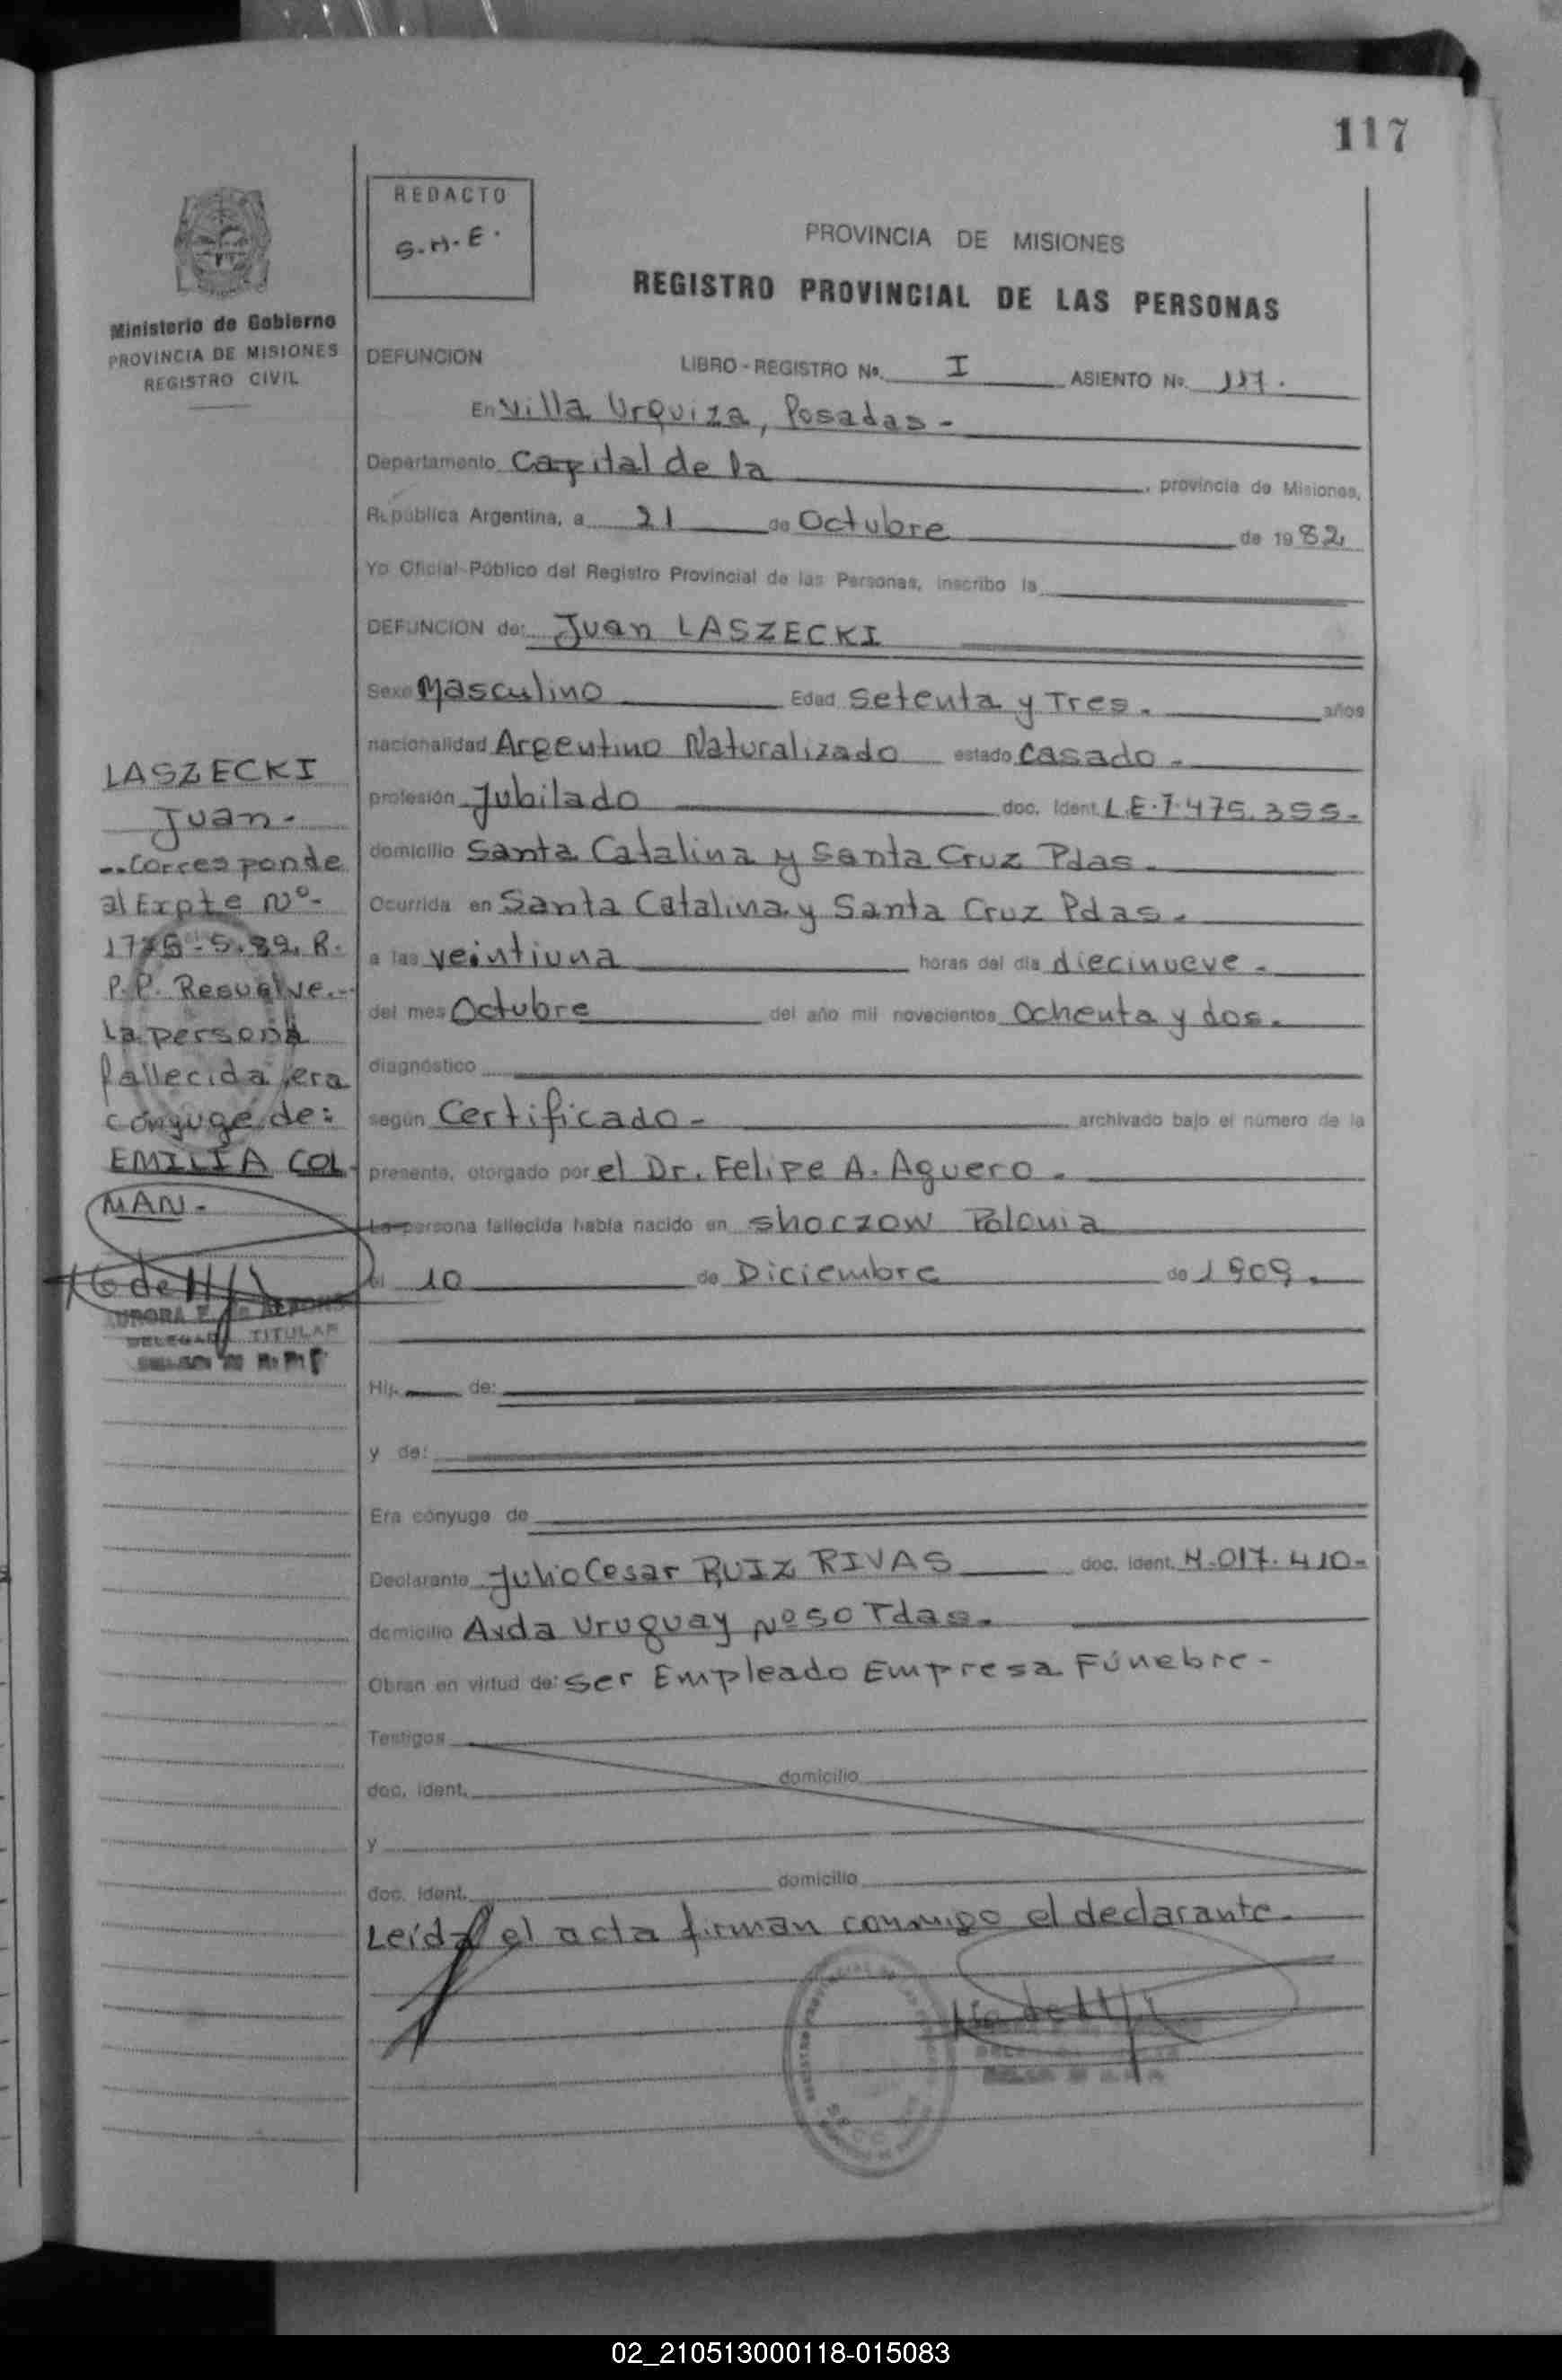 117
REDACTO
S.H.E.
PROVINCIA DE MISIONES
REGISTRO PROVINCIAL DE LAS PERSONAS
Ministerio de Gobierno
PROVINCIA DE MISIONES
REGISTRO CIVIL
DEFUNCION LIBRO - REGISTRO Nº. I ASIENTO Nº. 117.
En Villa Urquiza, Posadas -
Departamento Capital de la , provincia de Misiones,
República Argentina, a 21 de Octubre de 1982
Yo Oficial Público del Registro Provincial de las Personas, inscribo la
DEFUNCION de: Juan LASZECKI
Sexo Masculino Edad Setenta y Tres. años
nacionalidad Argentino Naturalizado estado Casado -
profesión Jubilado doc. ident. L.E.7.475.355.
domicilio Santa Catalina y Santa Cruz Pdas.
Ocurrida en Santa Catalina y Santa Cruz Pdas.
a las veintiuna horas del día diecinueve -
del mes Octubre del año mil novecientos Ochenta y dos.
diagnóstico
según Certificado - archivado bajo el número de la
presente, otorgado por el Dr. Felipe A. Aguero.
La persona fallecida había nacido en Shoczow Polonia
el 10 de Diciembre de 1909.
Hij de:
y de:
Era cónyuge de
Declarante Julio Cesar RUIZ RIVAS doc. ident. 4.017.410-
domicilio Avda Uruguay Nº50 Pdas.
Obran en virtud de: Ser Empleado Empresa Fúnebre -
Testigos
doc. ident. domicilio
y
doc. ident. domicilio
Leída el acta firman conmigo el declarante.
LASZECKI
Juan -
Corresponde
al Expte Nº-
R.
P.P. Resuelve.-
La persona
fallecida, era
cónyuge de:
EMILIA COL-
MAN -
DELEGADA TITULAR
02_210513000118-015083